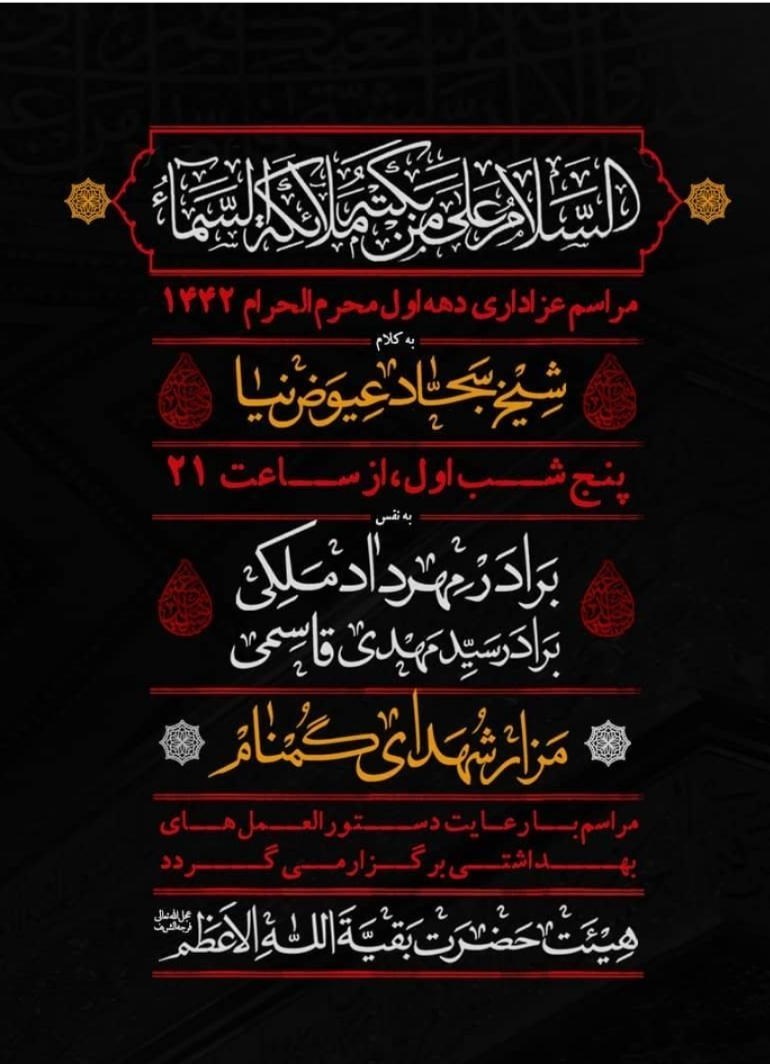 السَّلَامُ عَلَى مَن بَكَتْهُ مَلَائِكَةُ السَّمَاءِ
مراسم عزاداری دهه اول محرم الحرام ۱۴۴۲
به کلام
شیخ سجاد عیوض نیا
پنج شب اول، از ساعت ۲۱
به نفس
برادر مهرداد ملکی
برادر سید مهدی قاسمی
مزار شهدای گمنام
مراسم با رعایت دستورالعمل های
بهداشتی برگزار می گردد
هیئت حضرت بقیة الله الاعظم
عجل الله تعالی
فرجه الشریف